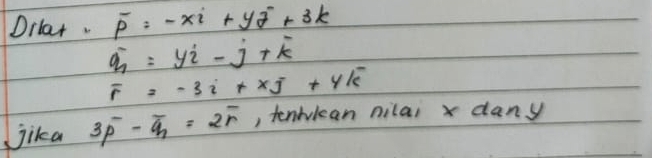 Dilat. p̄ = -xi + yj̄ + 3k
q̄ = yi - j + k̄
r̄ = -3i + xj̄ + 4k̄
jika 3p̄ - q̄ = 2r̄, tentukan nilai x dan y